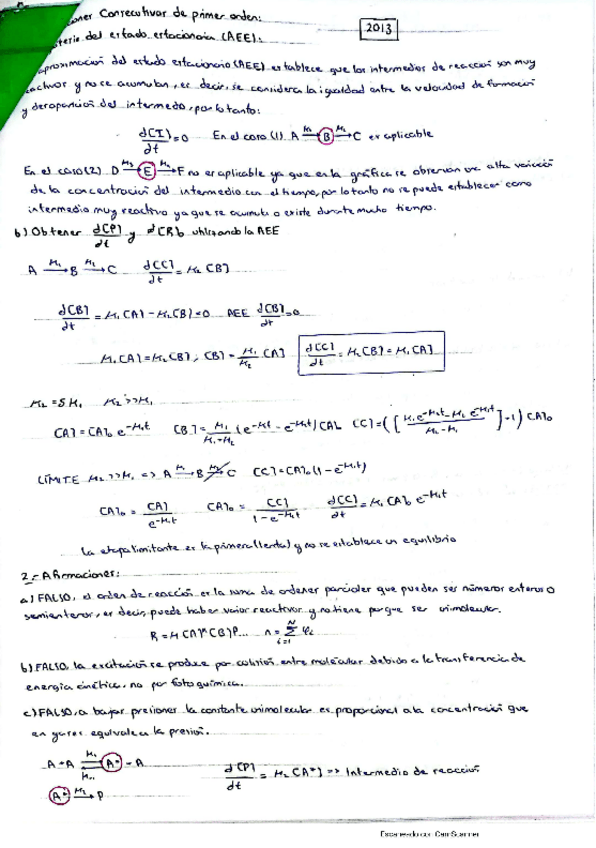 Consecutivas de primer orden:
2013
del estado estacionario (AEE):
aproximación del estado estacionario (AEE) establece que los intermedios de reacción son muy
reactivos y no se acumulan, es decir, se considera la igualdad entre la velocidad de formación
y desaparición del intermedio, por lo tanto:
d[I]/dt = 0 En el caso (1) A →K₁ B →K₂ C es aplicable
En el caso (2) D →K₃ E → F no es aplicable ya que en la gráfica se observa una alta variación
de la concentración del intermedio con el tiempo, por lo tanto no se puede establecer como
intermedio muy reactivo ya que se acumula o existe durante mucho tiempo.
b) Obtener d[P]/dt y utilizando la AEE
A →K₁ B →K₂ C d[C]/dt = K₂ [B]
d[B]/dt = K₁[A] - K₂[B] = 0 AEE d[B]/dt = 0
K₁[A] = K₂[B], [B] = K₁/K₂ [A] d[C]/dt = K₂[B] = K₁[A]
K₂ = 5K₁ K₂ >> K₁
[A] = [A]₀ e^-K₁t [B] = K₁/(K₁-K₂) [C] =
LÍMITE K₂ >> K₁ => A →K₁ B → C [C] = [A]₀ (1 - e^-K₁t)
[A]₀ = [A]/e^-K₁t [A]₀ = [C]/(1 - e^-K₁t) d[C]/dt = K₁ [A]₀ e^-K₁t
La etapa limitante es la primera (lenta) y no se establece un equilibrio
2.- Afirmaciones:
a) FALSO, el orden de reacción es la suma de ordenes parciales que pueden ser números enteros o
semienteros, es decir, puede haber varios reactivos y no tiene porque ser unimolecular.
R = K [A]^α [B]^β... n = Σ i=1 N φi
b) FALSO, la excitación se produce por colisión entre moléculas debido a la transferencia de
energía cinética, no por fotoquímica.
c) FALSO, a bajas presiones la constante unimolecular es proporcional a la concentración que
en gases equivale a la presión.
A + A ⇌ K₁ K₋₁ A* + A
d[P]/dt = K₂ [A*] => Intermedio de reacción
A* →K₂ P
Escaneado con CamScanner